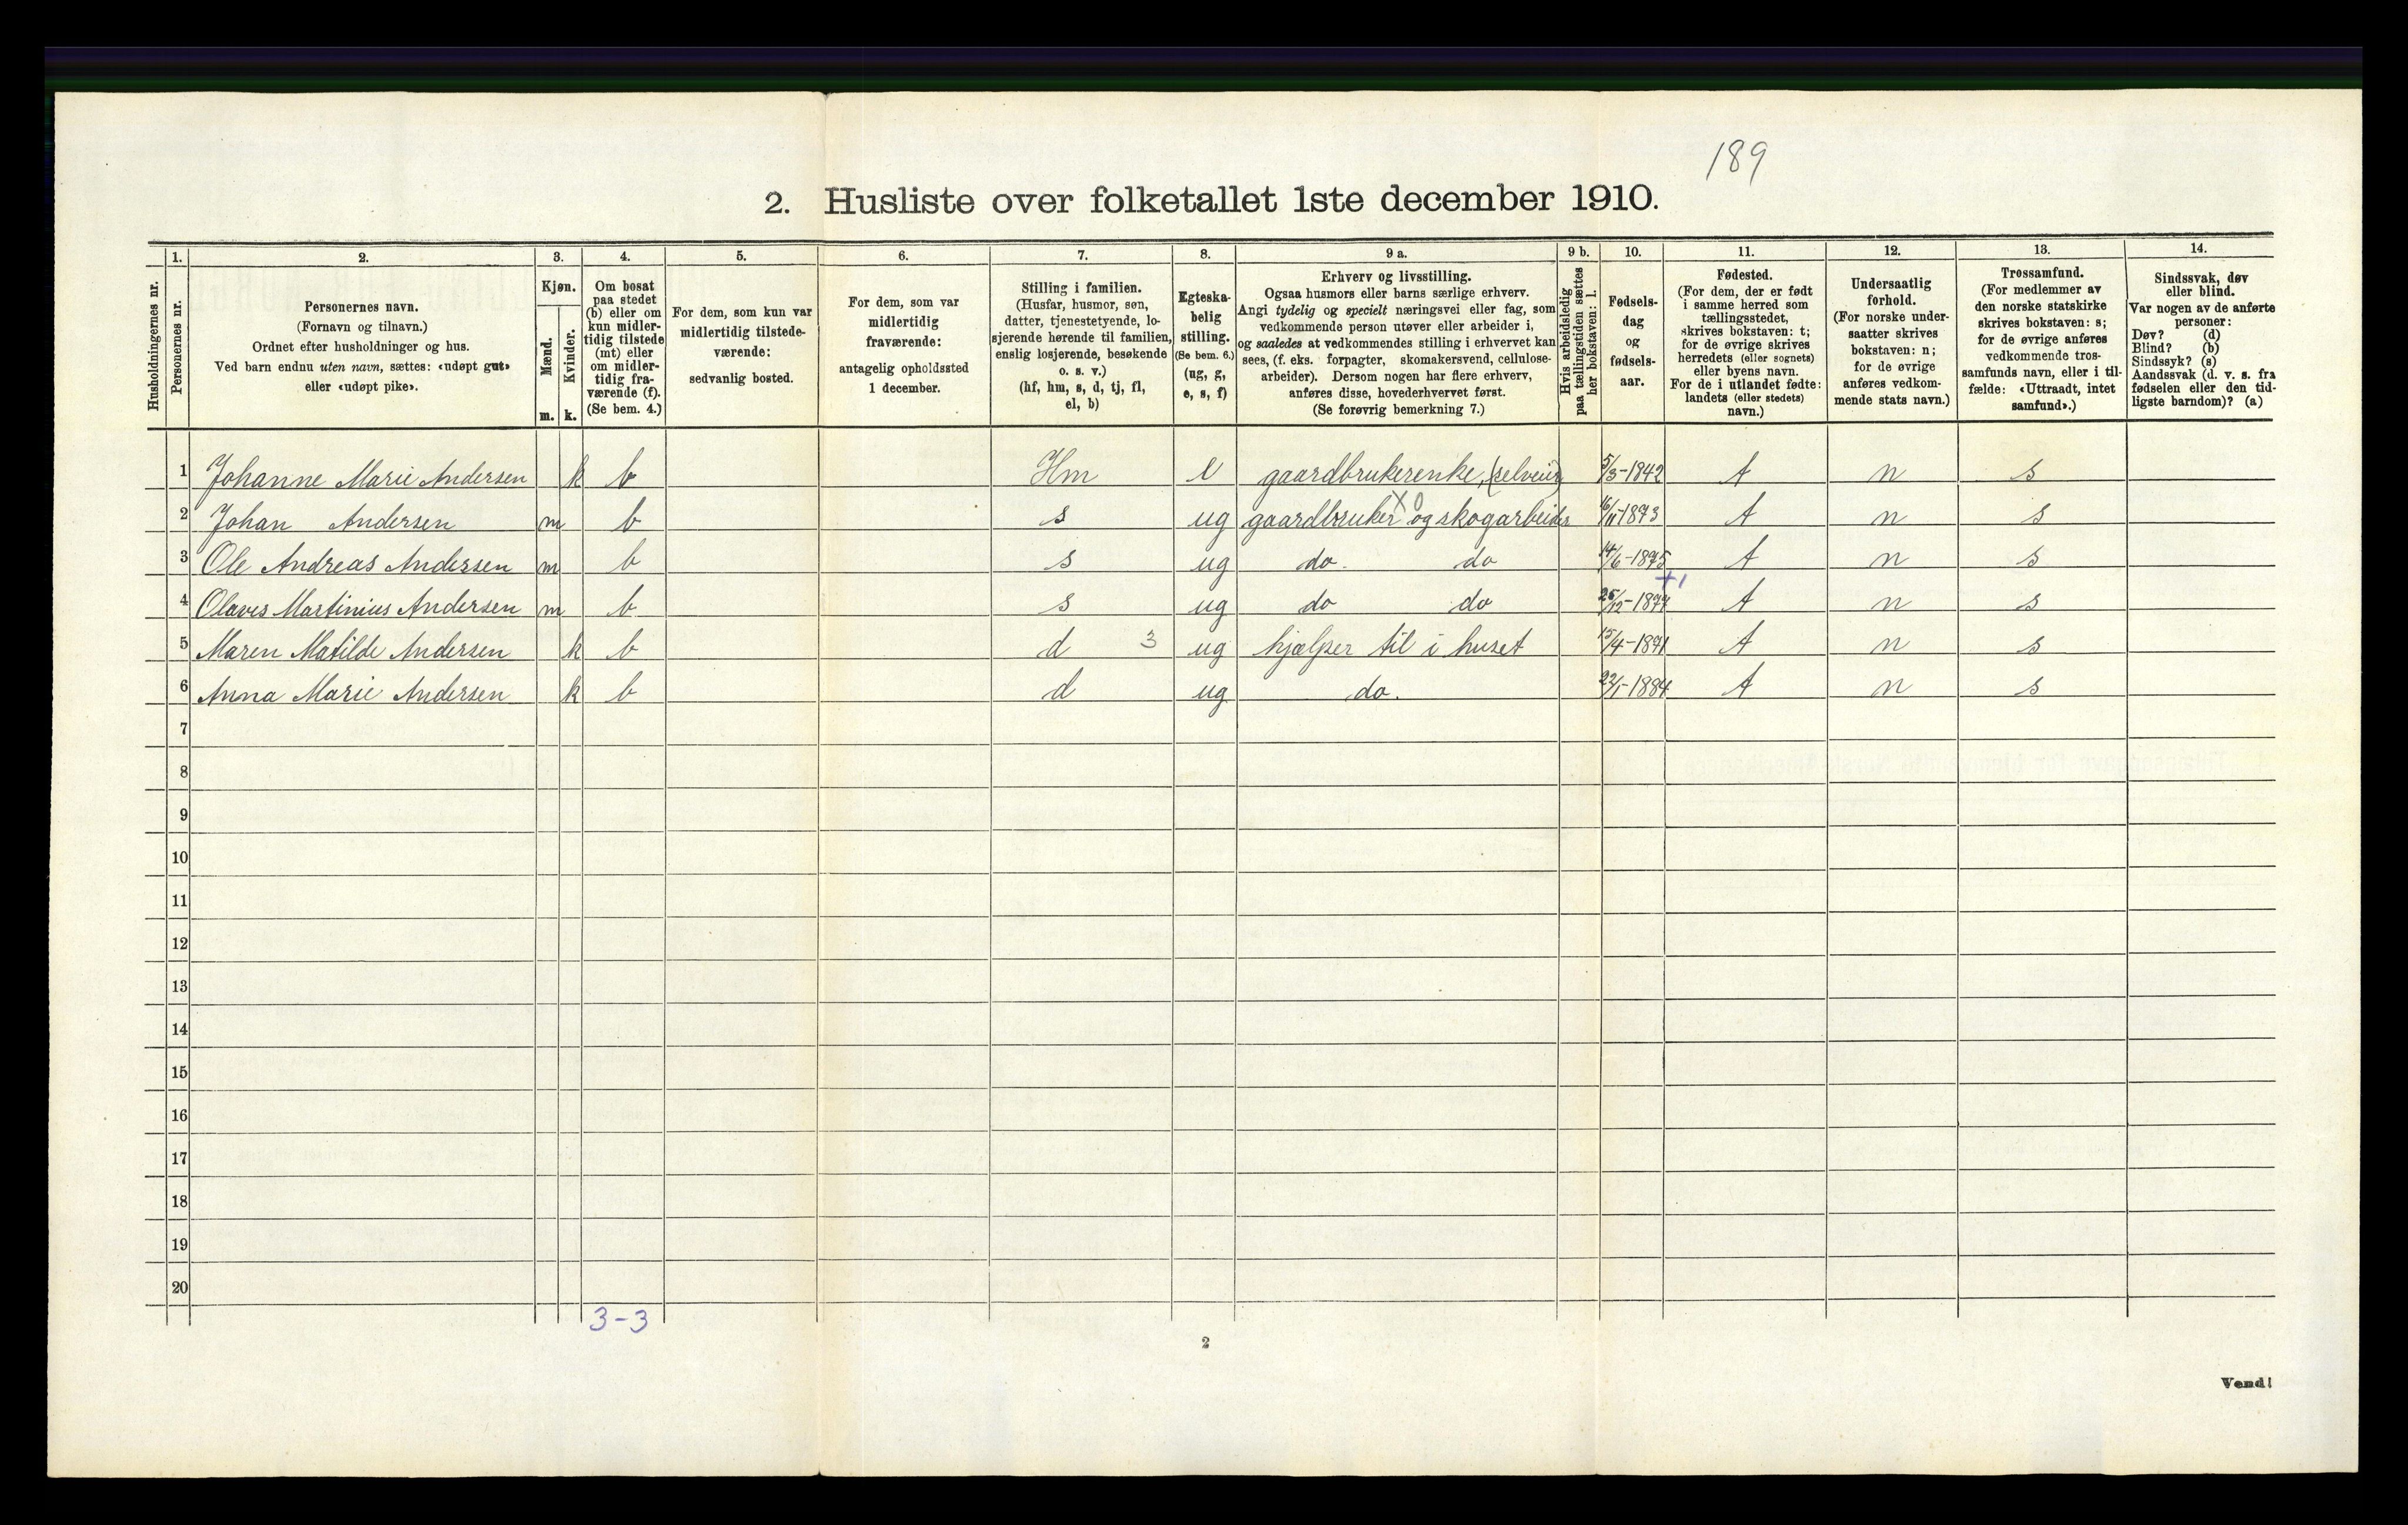 189
2. Husliste over folketallet 1ste december 1910.
Husholdningernes nr.
1. Personernes nr.
2. Personernes navn.
(Fornavn og tilnavn.)
Ordnet efter husholdninger og hus.
Ved barn endnu uten navn, sættes: «udøpt gut»
eller «udøpt pike».
3. Kjøn.
Mænd. m.
Kvinder. k.
4. Om bosat
paa stedet
(b) eller om
kun midler-
tidig tilstede
(mt) eller
om midler-
tidig fra-
værende (f).
(Se bem. 4.)
5. For dem, som kun var
midlertidig tilstede-
værende:
sedvanlig bosted.
6. For dem, som var
midlertidig
fraværende:
antagelig opholdssted
1 december.
7. Stilling i familien.
(Husfar, husmor, søn,
datter, tjenestetyende, lo-
sjerende hørende til familien,
enslig losjerende, besøkende
o. s. v.)
(hf, hm, s, d, tj, fl,
el, b)
8. Egteska-
belig
stilling.
(Se bem. 6.)
(ug, g,
e, s, f)
9 a. Erhverv og livsstilling.
Ogsaa husmors eller barns særlige erhverv.
Angi tydelig og specielt næringsvei eller fag, som
vedkommende person utøver eller arbeider i,
og saaledes at vedkommendes stilling i erhvervet kan
sees, (f. eks. forpagter, skomakersvend, cellulose-
arbeider). Dersom nogen har flere erhverv,
anføres disse, hovederhvervet først.
(Se forøvrig bemerkning 7.)
9 b. Hvis arbeidsledig
paa tællingstiden sættes
her bokstaven: l.
10. Fødsels-
dag
og
fødsels-
aar.
11. Fødested.
(For dem, der er født
i samme herred som
tællingsstedet,
skrives bokstaven: t;
for de øvrige skrives
herredets (eller sognets)
eller byens navn.
For de i utlandet fødte:
landets (eller stedets)
navn.)
12. Undersaatlig
forhold.
(For norske under-
saatter skrives
bokstaven: n;
for de øvrige
anføres vedkom-
mende stats navn.)
13. Trossamfund.
(For medlemmer av
den norske statskirke
skrives bokstaven: s;
for de øvrige anføres
vedkommende tros-
samfunds navn, eller i til-
fælde: «Uttraadt, intet
samfund».)
14. Sindssvak, døv
eller blind.
Var nogen av de anførte
personer:
Døv? (d)
Blind? (b)
Sindssyk? (s)
Aandssvak (d. v. s. fra
fødselen eller den tid-
ligste barndom)? (a)
1 Johanne Marie Andersen k b Hm e gaardbrukerenke, (selveier) 5/3-1842 t n s
2 Johan Andersen m b s ug gaardbruker X 0 og skogarbeider 16/11-1873 t n s
3 Ole Andreas Andersen m b s ug do. do 14/6-1875 t n s
+1
4 Olaves Martinius Andersen m b s ug do do 25/12-1877 t n s
5 Maren Matilde Andersen k b d 3 ug hjælper til i huset 15/4-1871 t n s
6 Anna Marie Andersen k b d ug do. 22/1-1884 t n s
7
8
9
10
11
12
13
14
15
16
17
18
19
20
3-3
2
Vend!